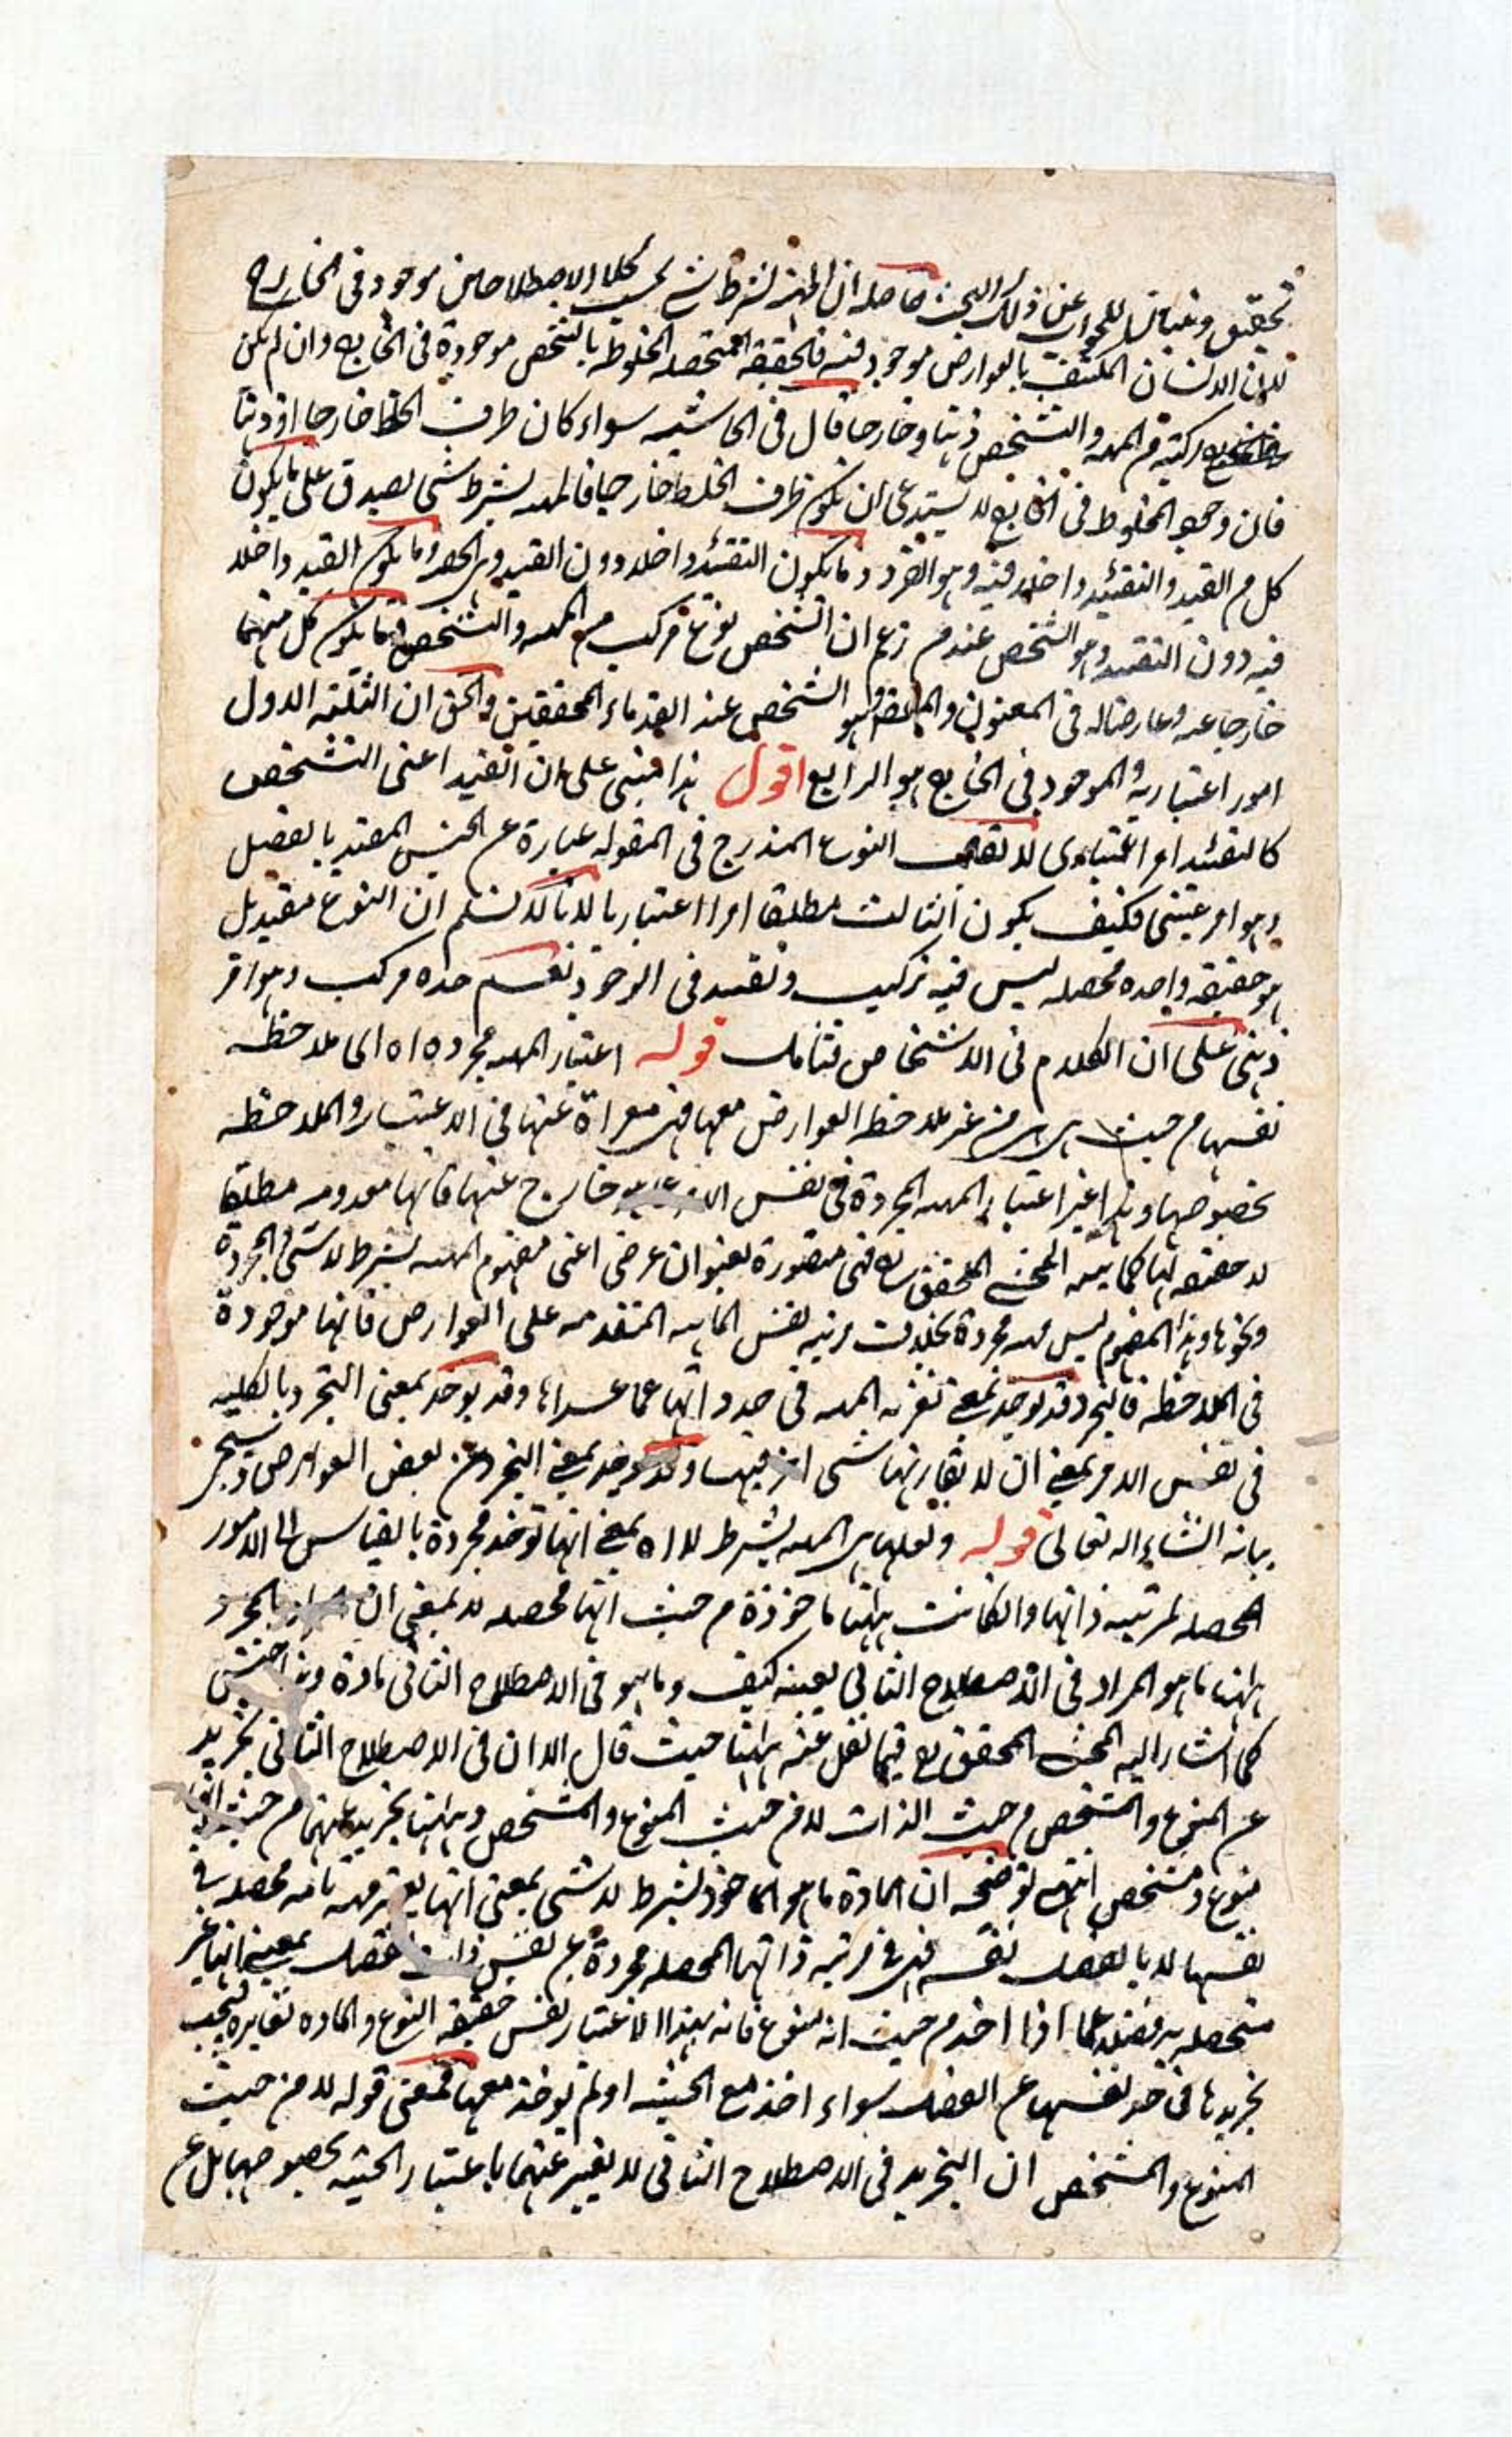 تحقيق وتبيان للجواب عن ذلك البحث حاصله ان المهية بشرط شئ بحسب كلا الاصطلاحين موجود في الخارج
لان الانسان المكتنف بالعوارض موجود فيه فالحقيقة المتحصله المخلوطة بالتشخص موجودة في الخارج وان لم يكن
مركبة من المهيه والتشخص ذهنا وخارجا قال في الحاشيه سواء كان ظرف الخلط خارجا او ذهنا
فان وجود المخلوط في الخارج لا يستدعي ان يكون ظرف الخلط خارجيا فالمهيه بشرط شئ يصدق على ما يكون
كل من القيد والتقئيد داخلا فيه وهو الفرد وما يكون التقئيد داخلا دون القيد وهي الحصه وما يكون القيد داخلا
فيه دون التقئيد وهو الشخص عند من زعم ان الشخص نوع مركب من المهيه والتشخص وما يكون كل منهما
خارجا عنه وعارضا له في المعنون وهو الشخص عند القدماء المحققين والحق ان الثلثة الاول
امور اعتبارية والموجود في الخارج هو الرابع اقول هذا مبني على ان القيد اعني التشخص
كالتقئيد امر اعتباري لا يقال النوع المندرج في المقوله عبارة عن الجنس المقيد بالفصل
وهو امر عيني فكيف يكون الثالث مطلقا امرا اعتباريا لانا لا نسلم ان النوع مقيد بل
هو حقيقه واحده محصله ليس فيه تركيب وتقئيد في الوجود نعم حده مركب وهو امر
ذهني على ان الكلام في الاشخاص فتامل قوله اعتبار المهيه مجرده اه اى ملاحظة
نفسها من حيث هي هي من غير ملاحظة العوارض معها فهي معراة عنها في الاعتبار والملاحظه
بخصوصها وهذا غير اعتبار المهيه المجردة في نفس الامر خارج عنها فانها معدومه مطلقا
لا حقيقه لها كما بينه المحشي المحقق ره فهي متصورة بعنوان عرضي اعني مفهوم المهيه بشرط لا شئ والمجردة
ونحوها وهذا المفهوم ليس مهيه مجردة بخلاف مرتبه نفس الماهيه المتقدمه على العوارض فانها موجودة
في الملاحظه فالتجرد قد يوخذ بمعنى تعرية المهيه في حد ذاتها عما عداها وقد يوخذ بمعنى التجرد بالكليه
في نفس الامر بمعنى ان لا يقارنها شئ اخر فيها وقد يوخذ بمعنى التجرد عن بعض العوارض وسيجئ
بيانه انشاء الله تعالى قوله ولعلها هي المهيه بشرط لا اه بمعنى انها توخذ مجردة بالقياس الى الامور
المحصله لمرتبه ذاتها وان كانت ههنا ماخوذة من حيث انها محصله لا بمعنى ان المراد بالمجرد
ههنا ما هو المراد في الاصطلاح الثاني بعينه كيف وما هو في الاصطلاح الثاني مادة وهذا جنس
كما اشار اليه المحشي المحقق ره فيما نقل عنه ههنا حيث قال الا ان في الاصطلاح الثاني تجريد
عن المنوع والمشخص من حيث الذات لا من حيث المنوع والمشخص وههنا تجريد عنهما من حيث انه
منوع ومشخص انتهى توضيحه ان المادة ما هو الماخوذ بشرط لا شئ بمعنى انها يعتبر مهيه تامه محصله في
نفسها لا بالفصل نفسه فهي في مرتبه ذاتها المحصله مجردة عن نفس ذات الفصل بمعنى انها غير
متحصله به فضلا عما اذا اخذ من حيث انه منوع فانه بهذا الاعتبار نفس حقيقه النوع والماده تغايره فيجب
تجريدها في حد نفسها عن الفصل سواء اخذ مع الحيثيه او لم يوخذ معها فمعنى قوله لا من حيث
المنوع والمشخص ان التجريد في الاصطلاح الثاني لا يعتبر عنهما باعتبار الحيثيه بخصوصها بل عن